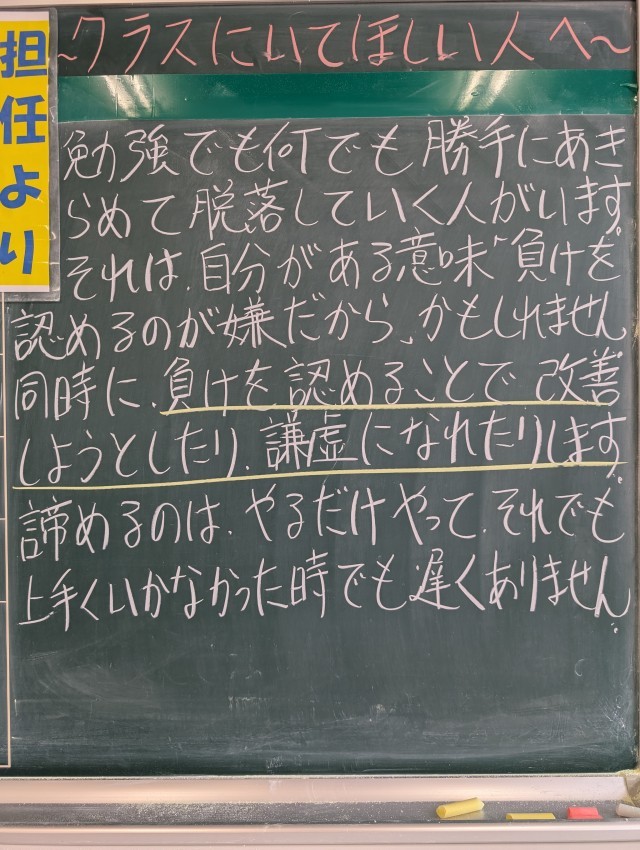 担任より
~クラスにいてほしい人へ~
勉強でも何でも勝手にあき
らめて脱落していく人がいます。
それは、自分がある意味"負けを
認めるのが嫌だから、かもしれません
同時に、負けを認めることで改善
しようとしたり、謙虚になれたりします。
諦めるのは、やるだけやって、それでも
上手くいかなかった時でも遅くありません。